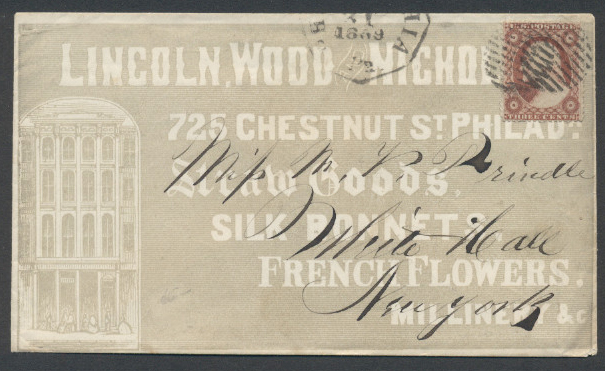 21
1859
U.S. POSTAGE
LINCOLN, WOOD & NICHOL
THREE CENTS
725 CHESTNUT ST PHILADA.
Miss M. P. Prindle
Straw Goods,
SILK BONNETS,
White Hall
FRENCH FLOWERS,
New York
MILLINERY &c